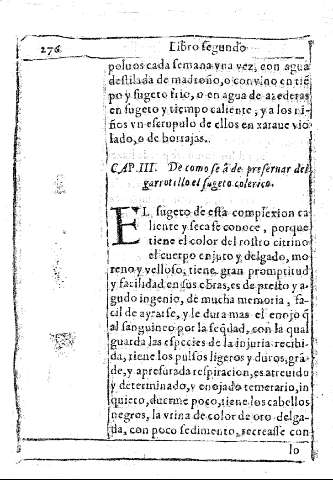 276 Libro segundo
poluos cada semana vna vez, con agua
destilada de madroño, o con vino en tiẽ
po y sugeto frio, o en agua de azederas
en sugeto y tiempo caliente, y a los ni-
ños vn escrupulo de ellos en xaraue vio
lado, o de borrajas.
CAP. III. De como se â de preseruar del
garrotillo el sugeto colerico.
EL sugeto de esta complexion ca
liente y seca se conoce, porque
tiene el color del rostro citrino
el cuerpo enjuto y delgado, mo
reno y velloso, tiene gran promptitud
y facilidad en sus obras, es de presto y a-
gudo ingenio, de mucha memoria, fa-
cil de ayrarse, y le dura mas el enojo q̃
al sanguineo por la sequdad, con la qual
guarda las especies de la injuria recibi-
da, tiene los pulsos ligeros y duros, grã-
de, y apresurada respiracion, es atreuido
y determinado, y enojado temerario, in
quieto, duerme poco, tiene los cabellos
negros, la vrina de color de oro delga-
da, con poco sedimento, secreasse con
lo